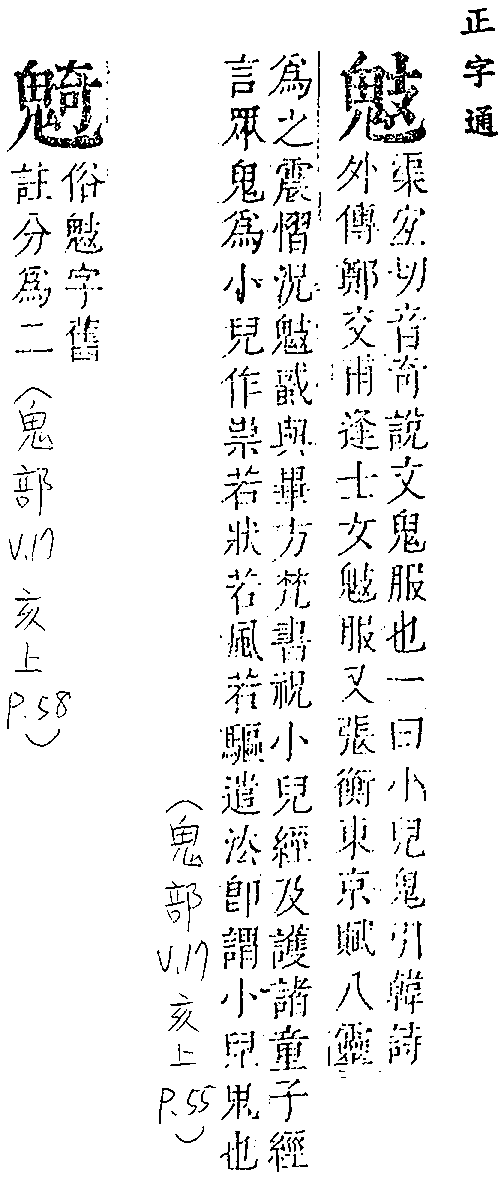 正字通
鬾
渠宜切音奇說文鬼服也一曰小兒鬼引韓詩
外傳鄭交甫逢士女鬾服又張衡東京賦八靈
爲之震慴況鬾蜮與畢方梵書祝小兒經及護諸童子經
言眾鬼爲小兒作祟若狀若風若驅遣法卽謂小兒鬼也
(鬼部 V.17 亥上 P.55)
䰇
俗鬾字舊
註分爲二
(鬼部 V.17 亥上 P.58)